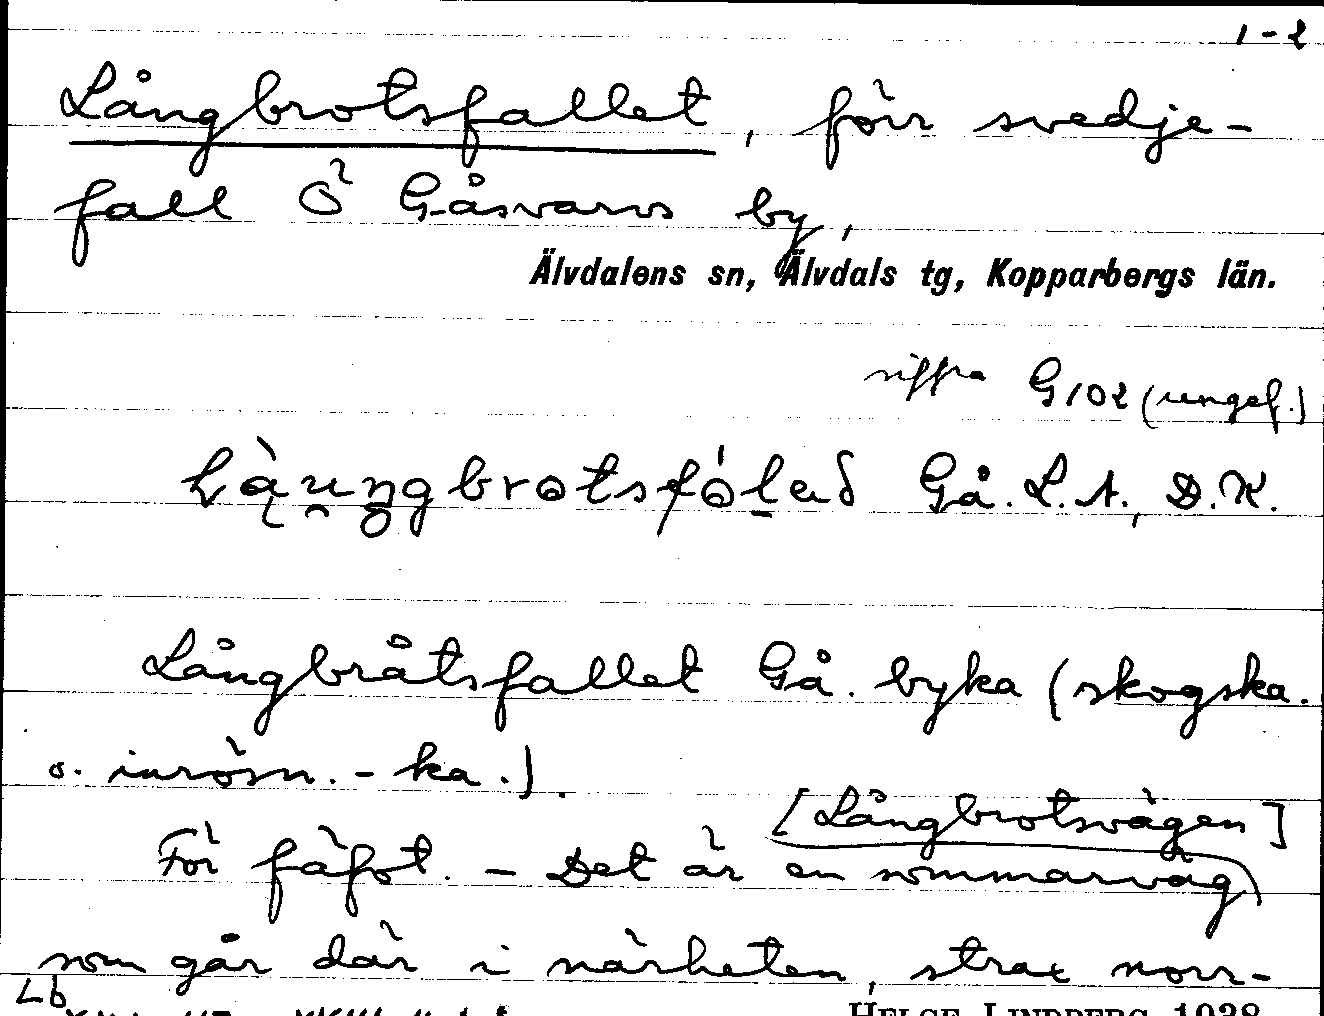 1-2
Långbrotsfallet, förr svedje-
fall Ö Gåsvarvs by,
Älvdalens sn, Älvdals tg, Kopparbergs län.
siffra G102 (ungef.)
Gå. L.A., D.K.
Långbråtsfallet Gå. byka (skogska.
o. inrösn.-ka.).
[Långbrotsvägen]
För fäfot. - Det är en sommarväg
som går där i närheten, strax norr-
Lb
HELGE LINDBERG 1938